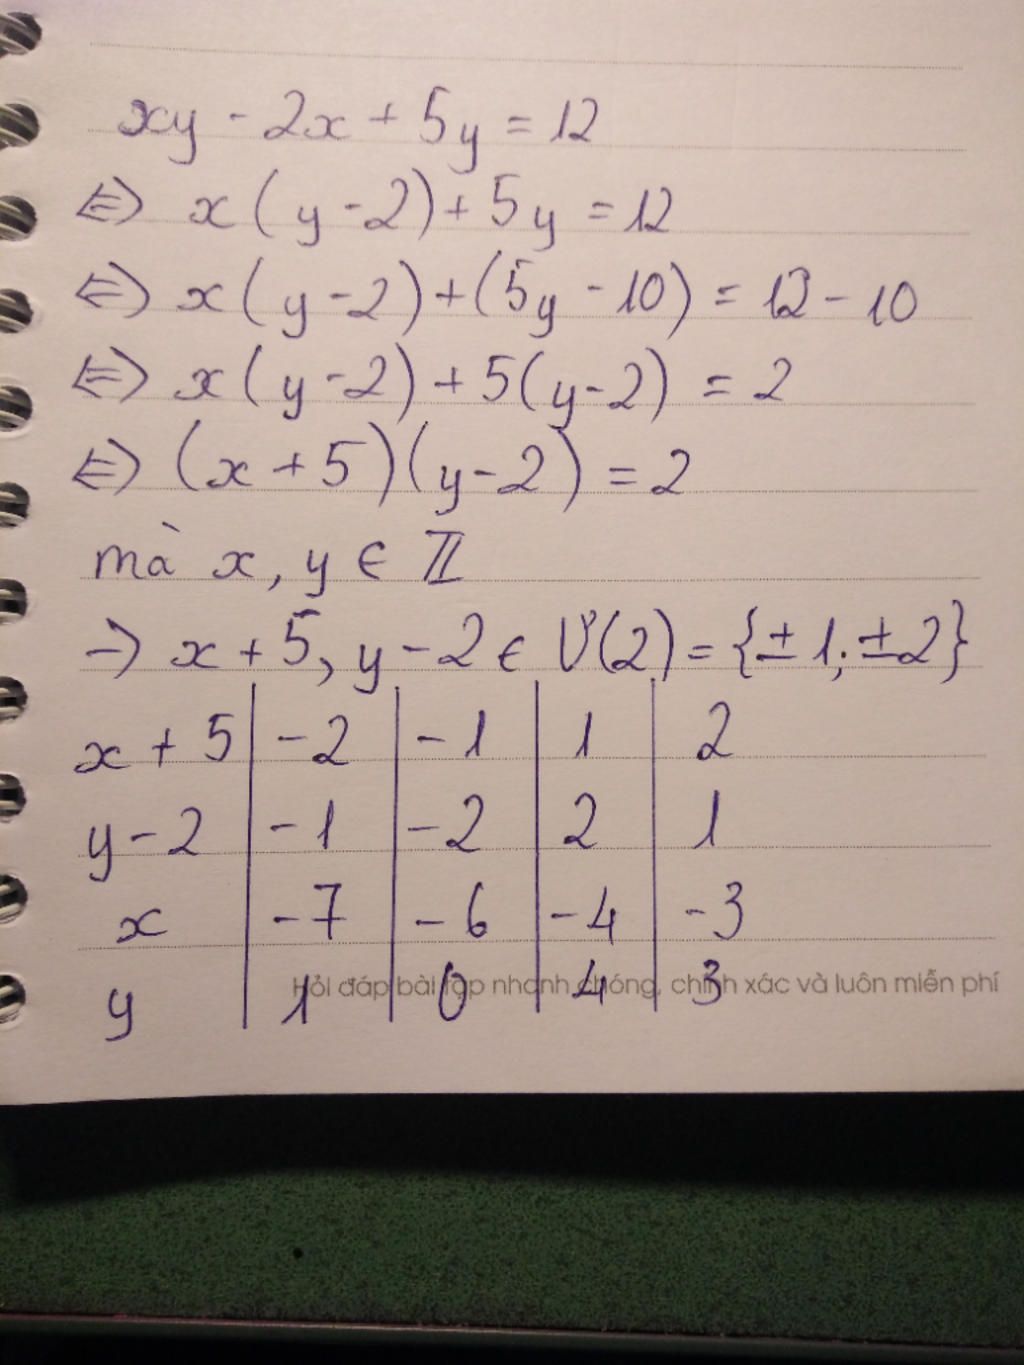 xy - 2x + 5y = 12
⇔ x(y-2) + 5y = 12
⇔ x(y-2) + (5y - 10) = 12 - 10
⇔ x(y-2) + 5(y-2) = 2
⇔ (x+5)(y-2) = 2
mà x, y ∈ ℤ
→ x+5, y-2 ∈ Ư(2) = {±1; ±2}
x + 5 | -2 | -1 | 1 | 2
y - 2 | -1 | -2 | 2 | 1
x | -7 | -6 | -4 | -3
y | 1 | 0 | 4 | 3
Hỏi đáp bài tập nhanh chóng, chính xác và luôn miễn phí